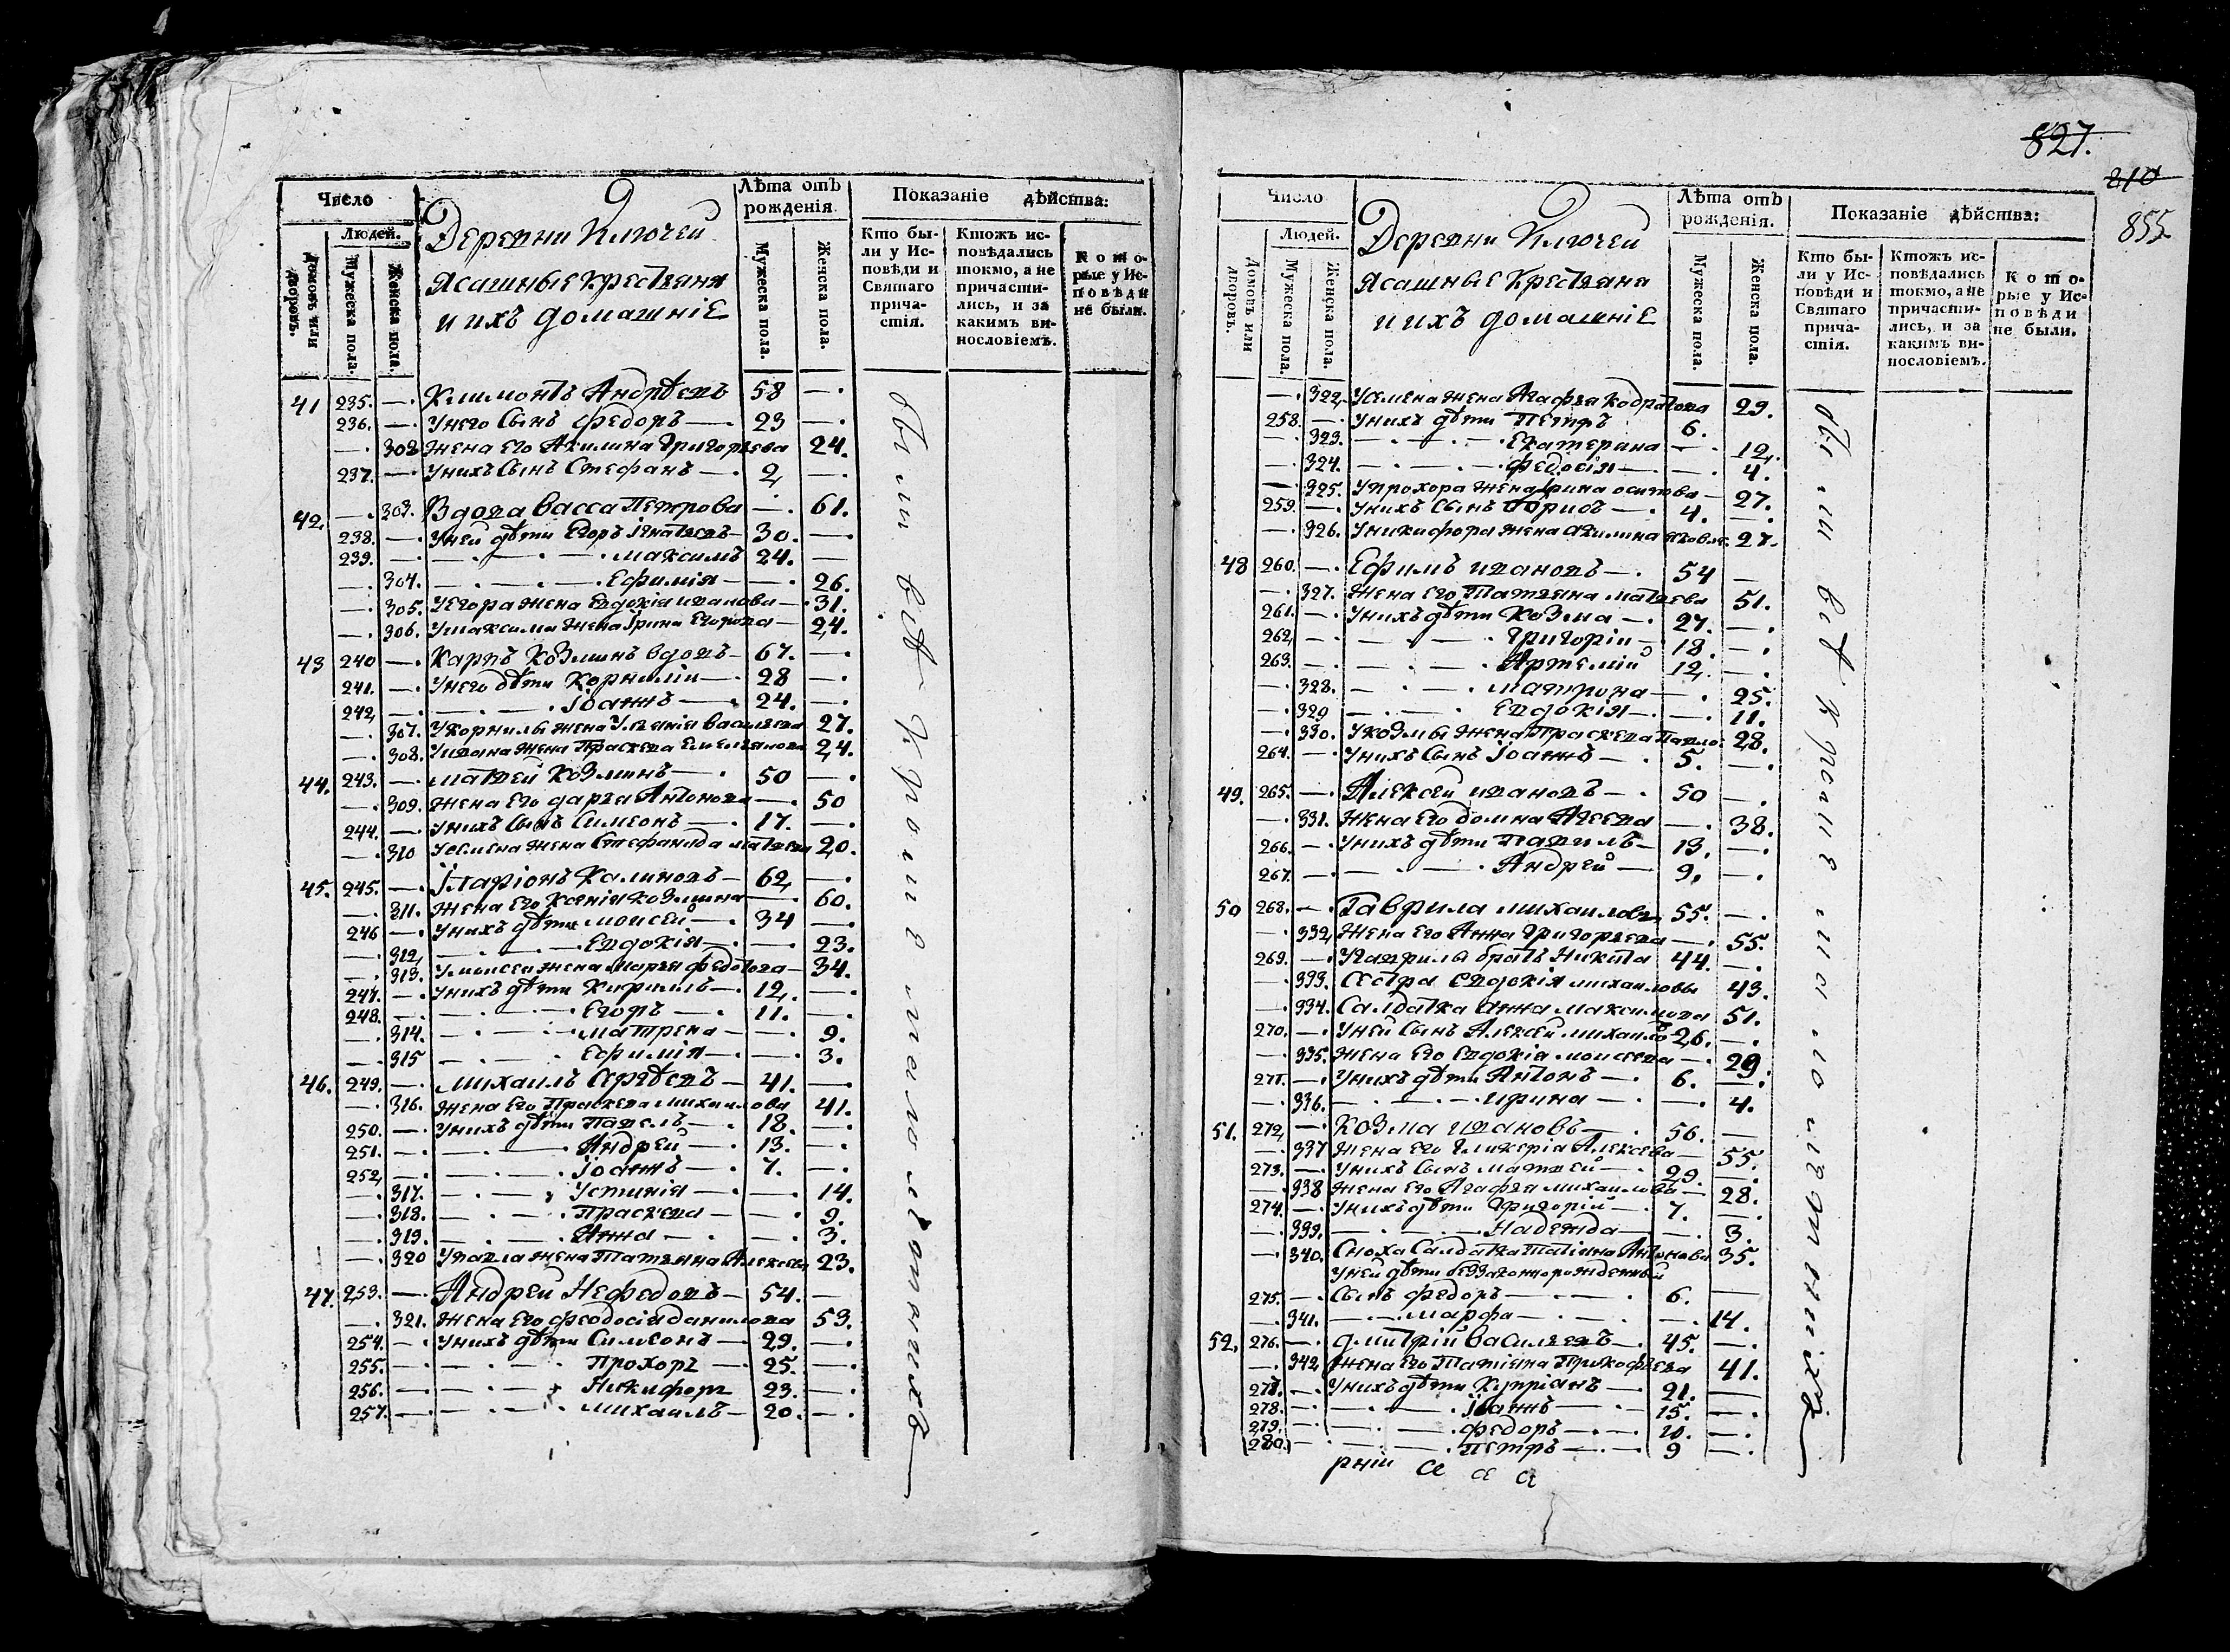 Число
Людей.
Домовъ или дворовъ.
Мужеска пола.
Женска пола.
Деревни Ключей
ясашные крестьяня
и ихъ домашніе
Лѣта отъ рожденія.
Мужеска пола.
Женска пола.
Показаніе дѣйства:
Кто бы-
ли у Ис-
повѣди и
Святаго
прича-
стія.
Ктожъ ис-
повѣдались
токмо, а не
причасти-
лись, и за
какимъ ви-
нословіемъ.
Кото-
рые у Ис-
повѣди
не были.
41 235. — Климонтъ Андрѣевъ 58 —
236. — Унего сынъ Федоръ — 23 —
— 302 Жена его Акилина Григорьева 24.
237. — Унихъ сынъ Стефанъ — 2, —
42, — 303. Вдова Васса Петрова — 61.
238. — Уней дѣти Егоръ Игнатьевъ — 30. —
239. — Максимъ 24. —
— 304. Ефимія — 26.
— 305. Уегора жена Евдокія Иванова — 31.
— 306. Умаксима жена Ірина Егорова — 24.
43 240 — Карпъ Козминъ вдовъ — 67. —
241. — Унего дѣти Корнилій — 28 —
242, — Іоаннъ — 24. —
— 307. Укорнилы жена Ульянія Васильева 27.
— 308. Уивана жена Праскева Емельянова 24.
44. 243. — Матвей Козминъ — 50 —
— 309. Жена его Дарья Антонова — 50
244. — Унихъ сынъ Симеонъ — 17. —
— 310 Усемена жена Стефанида Матвеева 20.
45. 245. — Іларіонъ Калиновъ — 62, —
— 311. Жена его Ксенія Козмина — 60.
246 — Унихъ дѣти Моисей — 34 —
— 312, Евдокія — 23.
— 313. Умоисея жена Марья Федотова — 34.
247. — Унихъ дѣти Кирилъ — 12, —
248. — Егоръ — 11. —
— 314. Матрена — 9.
— 315 Ефимія — 3.
46. 249. — Михаилъ Сергѣевъ — 41. —
— 316. Жена его Праскева Михаилова 41.
250. — Унихъ дѣти Павелъ — 18. —
251. — Андрей — 13. —
252, — Іоаннъ — 7. —
— 317. Устинія — 14.
— 318. Праскева — 9.
— 319. Анна — 3.
— 320 Упавла жена Татьяна Алексеева 23.
47. 253. — Андрей Нефедовъ — 54. —
— 321. Жена его Феодосія Данилова 53.
254. — Унихъ дѣти Симеонъ — 29. —
255. — Прохоръ — 25. —
256. — Никифоръ 23. —
257. — Михаилъ — 20. —
были всѣ кроме малолѣтнихъ
827.
210
855
Число
Людей.
Домовъ или дворовъ.
Мужеска пола.
Женска пола.
Деревни Ключей
ясашные крестьяня
и ихъ домашніе
Лѣта отъ рожденія.
Мужеска пола.
Женска пола.
Показаніе дѣйства:
Кто бы-
ли у Ис-
повѣди и
Святаго
прича-
стія.
Ктожъ ис-
повѣдались
токмо, а не
причасти-
лись, и за
какимъ ви-
нословіемъ.
Кото-
рые у Ис-
повѣди
не были.
— 322, Усемена жена Агафья Кодратова 29.
258. — Унихъ дѣти Петръ 6.
— 323. Екатерина — 12,
— 324. Федосія — 4.
— 325. Упрохора жена Ірина Осипова — 27.
259. — Унихъ сынъ Борисъ — 4. —
— 326. Уникифора жена Акилина Яковле. 27.
48 260. — Ефимъ Ивановъ — 54 —
— 327. Жена его Татьяна Матвева 51.
261. — Унихъ дѣти Козма — 27. —
262, — Григорій — 18. —
263. — Артемій 12, —
— 328. Матрона — 25.
— 329 Евдокія — 11.
— 330. Укозмы жена Праскева Павло. 28.
264. — Унихъ сынъ Іоаннъ — 5. —
49. 265. — Алексей Ивановъ — 50 —
— 331. Жена его Домна Агеева — 38.
266. — Унихъ дѣти Павилъ — 13. —
267. — Андрей — 9, —
50 268. — Гаврила Михаиловъ 55. —
— 332, Жена его Анна Григорьева — 55.
269. — Угаврилы братъ Никита 44. —
— 333. Сестра Евдокія Михаиловы 43.
— 334. Салдатка Анна Максимова 51.
270. — Уней сынъ Алексей Михаило 26. —
— 335. Жена его Евдокія Моисеева — 29
271. — Унихъ дѣти Антонъ — 6. —
— 336. Ирина — 4.
51. 272, — Козма Ивановъ — 56. —
— 337 Жена его Гликерія Алексева — 55.
273. — Унихъ сынъ Матвей — 29. —
— 338 Жена его Агафья Михаилова — 28.
274. — Унихъ дѣти Григорій — 7. —
— 339. Надежда — 3.
— 340. Сноха Салдатка Татіяна Антонова 35.
Уней дѣти беззаконнорожденный
275. — Сынъ Федоръ — 6. —
— 341. Марфа — 14.
52, 276. — Дмитрій Васильевъ — 45. —
— 342, Жена его Татіяна Прокофьева 41.
277. — Унихъ дѣти Купріянъ — 21. —
278. — Іоаннъ — 15. —
279. — Федоръ — 10. —
280. — Петръ — 9 —
были всѣ кроме малолетнихъ
рній